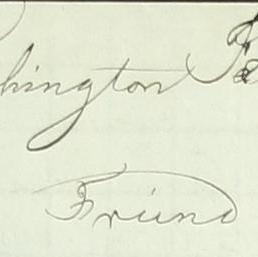 hington
Friend